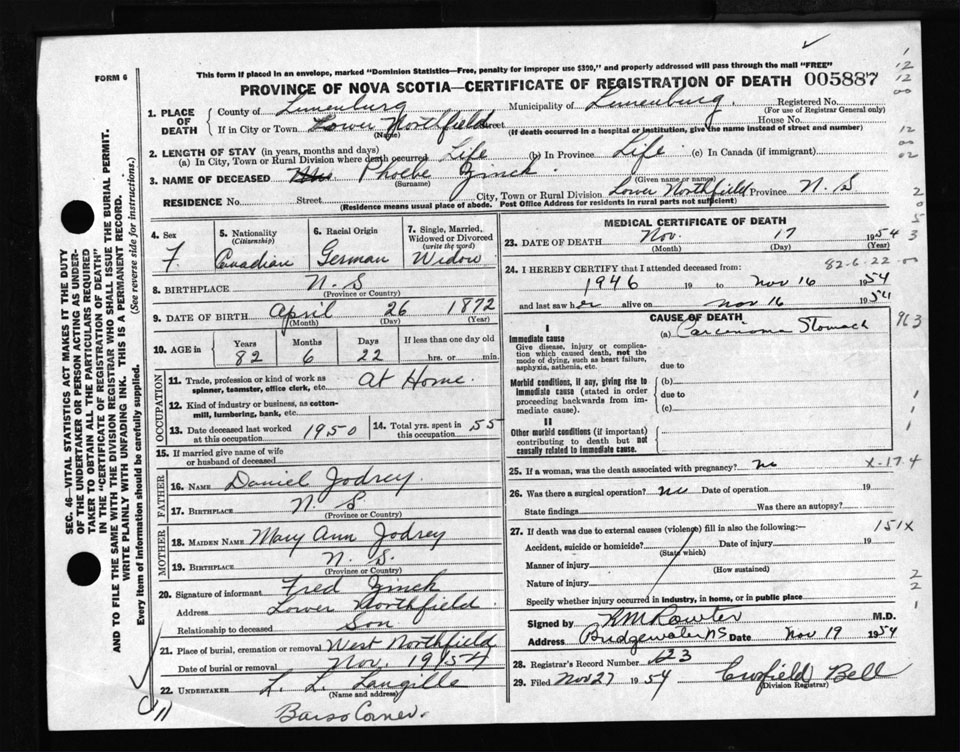 FORM 6
This form if placed in an envelope, marked "Dominion Statistics—Free, penalty for improper use $300," and properly addressed will pass through the mail "FREE"
PROVINCE OF NOVA SCOTIA—CERTIFICATE OF REGISTRATION OF DEATH 005887
1. PLACE OF DEATH County of Lunenburg Municipality of Lunenburg. Registered No.
(For use of Registrar General only)
If in City or Town Lower Northfield Street House No.
(Name) (If death occurred in a hospital or institution, give the name instead of street and number)
2. LENGTH OF STAY (in years, months and days)
(a) In City, Town or Rural Division where death occurred Life (b) In Province Life (c) In Canada (if immigrant)
3. NAME OF DECEASED Phoebe Zinck
(Surname) (Given name or names)
RESIDENCE No. Street City, Town or Rural Division Lower Northfield Province N. S
(Residence means usual place of abode. Post Office Address for residents in rural parts not sufficient)
4. Sex F.
5. Nationality (Citizenship) Canadian
6. Racial Origin German
7. Single, Married, Widowed or Divorced (write the word) Widow
8. BIRTHPLACE N. S
(Province or Country)
9. DATE OF BIRTH April 26 1872
(Month) (Day) (Year)
10. AGE in Years Months Days If less than one day old
82 6 22 hrs. or min.
OCCUPATION
11. Trade, profession or kind of work as spinner, teamster, office clerk, etc. At Home.
12. Kind of industry or business, as cotton-mill, lumbering, bank, etc.
13. Date deceased last worked at this occupation 1950 14. Total yrs. spent in this occupation 55
15. If married give name of wife or husband of deceased
FATHER
16. NAME Daniel Jodrey
17. BIRTHPLACE N. S
(Province or Country)
MOTHER
18. MAIDEN NAME Mary Ann Jodrey
19. BIRTHPLACE N. S.
(Province or Country)
20. Signature of informant Fred Zinck
Address Lower Northfield
Relationship to deceased Son
21. Place of burial, cremation or removal West Northfield
Date of burial or removal Nov. 19/54
22. UNDERTAKER L. L. Langille
(Name and address)
Barss Corner.
MEDICAL CERTIFICATE OF DEATH
23. DATE OF DEATH Nov. 17 1954
(Month) (Day) (Year)
82-6-22
24. I HEREBY CERTIFY that I attended deceased from:
1946 19 to Nov 16 1954
and last saw her alive on Nov 16 1954
CAUSE OF DEATH
I
Immediate cause (a) Carcinoma Stomach
Give disease, injury or complication which caused death, not the mode of dying, such as heart failure, asphyxia, asthenia, etc.
due to
Morbid conditions, if any, giving rise to immediate cause (stated in order proceeding backwards from immediate cause).
(b)
due to
(c)
II
Other morbid conditions (if important) contributing to death but not causally related to immediate cause.
25. If a woman, was the death associated with pregnancy? no
X-17.4
26. Was there a surgical operation? no Date of operation 19
State findings Was there an autopsy?
27. If death was due to external causes (violence) fill in also the following:— 151X
Accident, suicide or homicide? Date of injury 19
(State which)
Manner of injury
(How sustained)
Nature of injury
Specify whether injury occurred in industry, in home, or in public place
Signed by M.D.
Address Bridgewater NS Date Nov 19 1954
28. Registrar's Record Number 623
29. Filed Nov 27 1954 Bell
(Division Registrar)
SEC. 46–VITAL STATISTICS ACT MAKES IT THE DUTY OF THE UNDERTAKER OR PERSON ACTING AS UNDERTAKER TO OBTAIN ALL THE PARTICULARS REQUIRED IN THE "CERTIFICATE OF REGISTRATION OF DEATH" AND TO FILE THE SAME WITH THE DIVISION REGISTRAR WHO SHALL ISSUE THE BURIAL PERMIT.
WRITE PLAINLY WITH UNFADING INK. THIS IS A PERMANENT RECORD.
Every item of information should be carefully supplied. (See reverse side for instructions.)
12
12
00
12
00
02
2
0
5
3
963
1
1
1
2
2
1